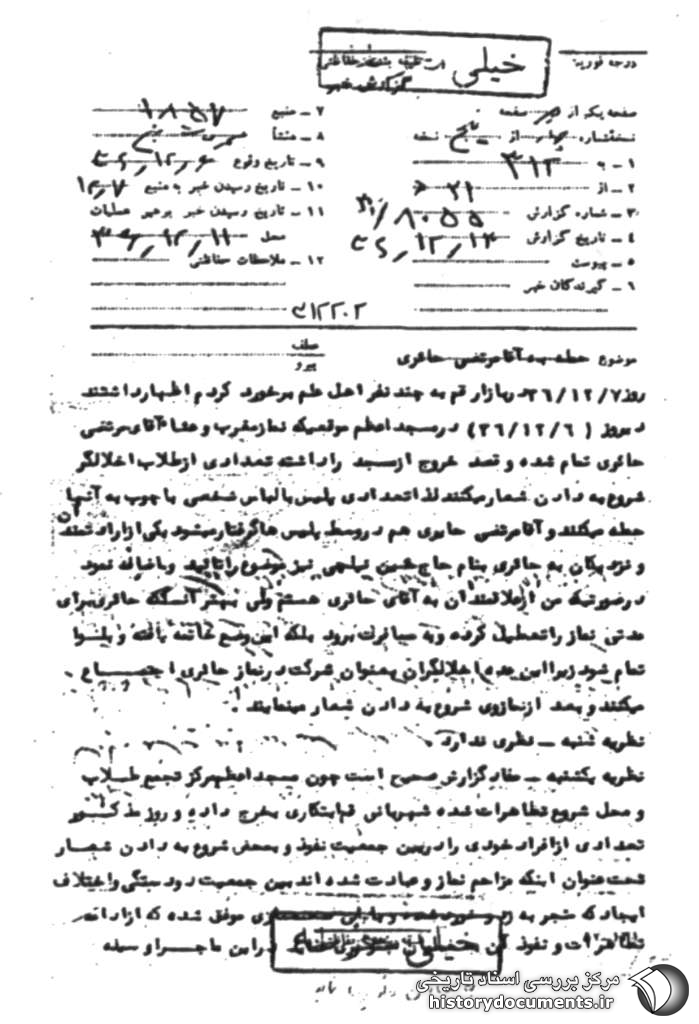 درجه فوریت
طبقه بندی حفاظتی
خیلی
گزارش خبر
صفحه یک از صفحه
نسخه شماره چهار از پنج نسخه
۱ ـ به ۳۱۲
۲ ـ از ۲۱
۳ ـ شماره گزارش ۸۰۵۵
۴ ـ تاریخ گزارش ۳۶,۱۲,۱۴
۵ ـ پیوست
۶ ـ گیرندگان خبر
۷ ـ منبع ۱۸۵۷
۸ ـ منشأ
۹ ـ تاریخ وقوع ۳۶,۱۲,۶
۱۰ ـ تاریخ رسیدن خبر به منبع ۱۲,۷
۱۱ ـ تاریخ رسیدن خبر برهبر عملیات
محل ۳۶,۱۲,۱۱
۱۲ ـ ملاحظات حفاظتی
۳۱۲۲۰۲
موضوع حمله به آقا مرتضی حائری
عطف
پیرو
روز ۳۶/۱۲/۷ در بازار قم به چند نفر اهل علم برخورد کردم اظهار داشتند
دیروز (۳۶/۱۲/۶) در مسجد اعظم موقعیکه نماز مغرب و عشاء آقای مرتضی
حائری تمام شده و قصد خروج از مسجد را داشته تعدادی از طلاب اخلالگر
شروع به دادن شعار میکنند لذا تعدادی پلیس با لباس شخصی با چوب به آنها
حمله میکنند و آقا مرتضی حایری هم در وسط پلیس ها گرفتار میشود یکی از ارادتمندان
و نزدیکان به حائری بنام حاج حسین نیز موضوع را تائید و اضافه نمود
در صورتیکه من از علاقمندان به آقای حائری هستم ولی بهتر آنستکه حائری برای
مدتی نماز را تعطیل کرده و به مسافرت برود بلکه این وضع خاتمه یافته و بلوا
تمام شود زیرا این عده اخلالگران بعنوان شرکت در نماز حائری اجتماع
میکنند و بعد از نماز وی شروع به دادن شعار مینمایند.
نظریه شنبه ـ نظری ندارد.
نظریه یکشنبه ـ مفاد گزارش صحیح است چون مسجد اعظم مرکز تجمع طلاب
و محل شروع تظاهرات شده شهربانی قم ابتکاری بخرج داده و روز مذکور
تعدادی از افراد خودی را در بین جمعیت نفوذ و بمحض شروع به دادن شعار
تحت عنوان اینکه مزاحم نماز و عبادت شده اند بین جمعیت دودستگی و اختلاف
ایجاد که منجر به زد و خورد شده و موفق شده که از ادامه
تظاهرات و نفوذ آن در این ماجرا وسیله
خیلی
مرکز بررسی اسناد تاریخی
historydocuments.ir